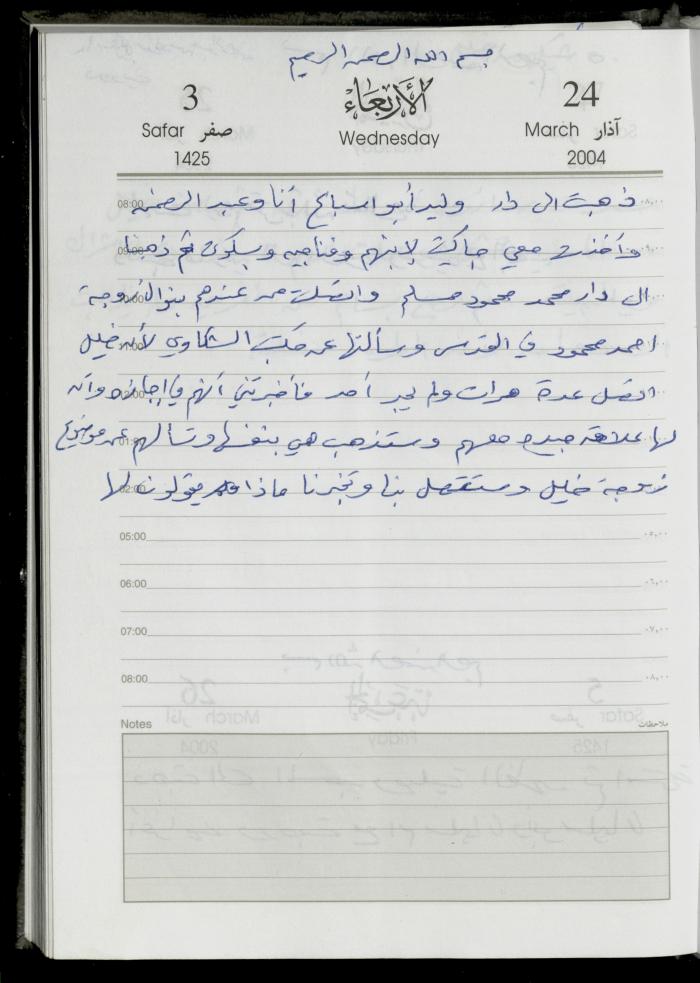 بسم الله الرحمن الرحيم
3 الأربعاء 24
Safar صفر Wednesday March آذار
1425 2004
08:00 ذهبت الى دار وليد أبو اسباع أنا وعبد الرحمن
09:00 وأخذت معي جاكيت لإبنهم وفناجين وبسكوت ثم ذهبنا
الى دار محمد محمود مسلم واتصلت من عندهم بنوال زوجة
احمد محمود في القدس وسألتها عن مكتب الشكاوي لأنه خليل
اتصل عدة مرات ولم يجد أحد فأخبرتني أنهم في اجازه وأنه
لها علاقة جيدة معهم وستذهب هي بنفسها وتسألهم عن موضوع
02:00 زوجة خليل وستتصل بنا وتخبرنا ماذا يقولون لها
05:00 ٠٥,٠٠
06:00 ٠٦,٠٠
07:00 ٠٧,٠٠
08:00 ٠٨,٠٠
Notes ملاحظات